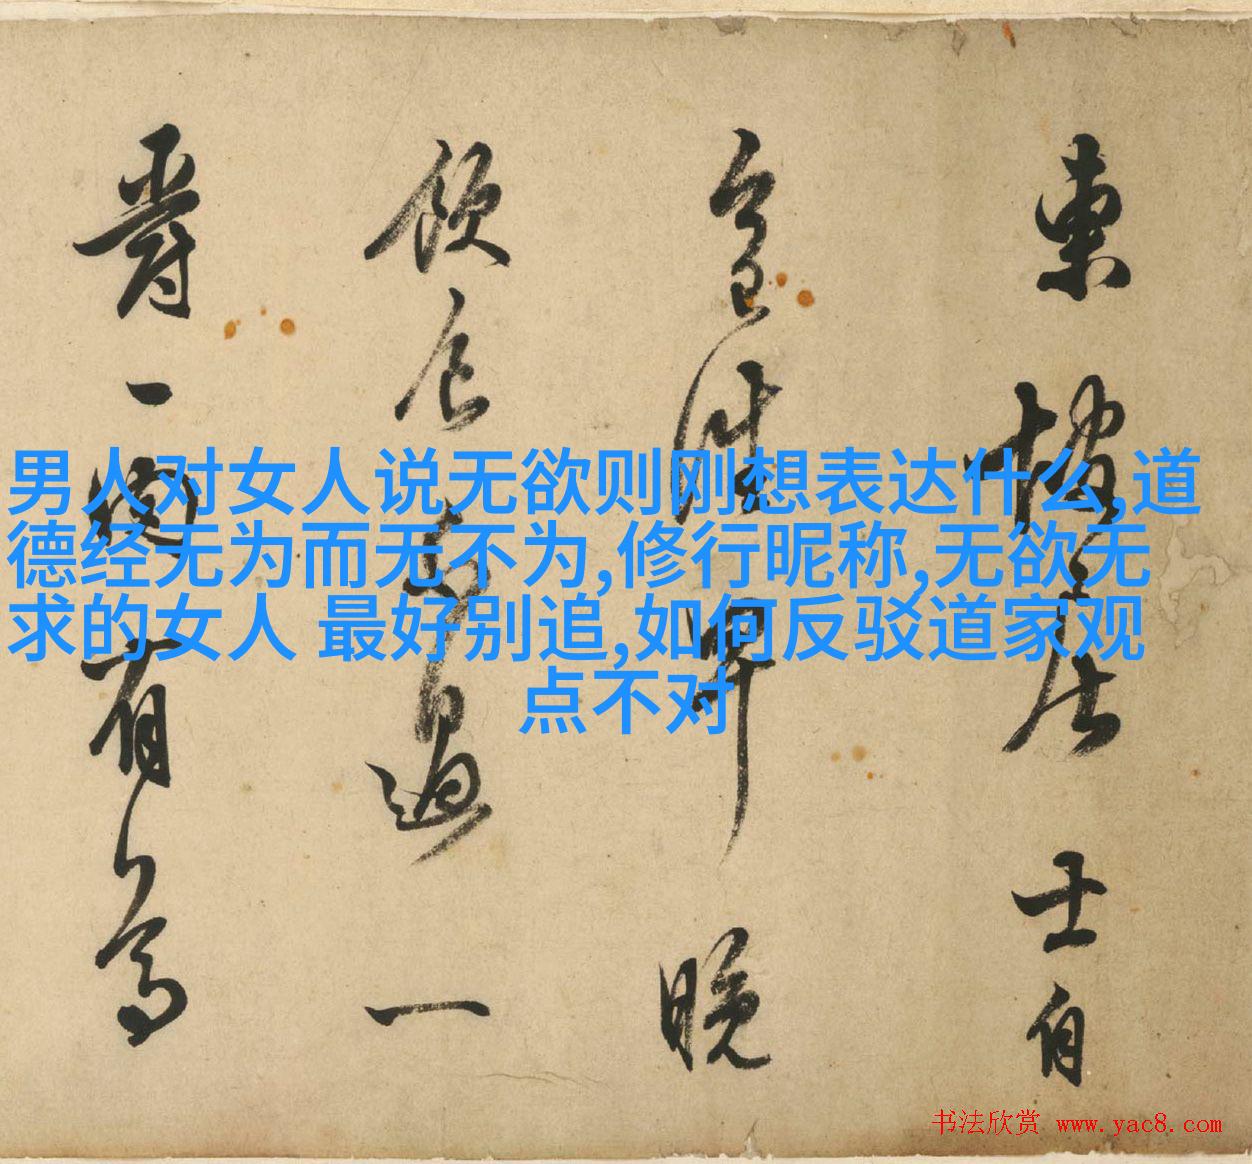 男人对女人说无欲则刚想表达什么,道
德经无为而无不为,修行昵称,无欲无
求的女人 最好别追,如何反驳道家观
点不对
東坡居士自
今日往早晚
飲食不過一
爵一肉有尊
书法欣赏 www.yac8.com